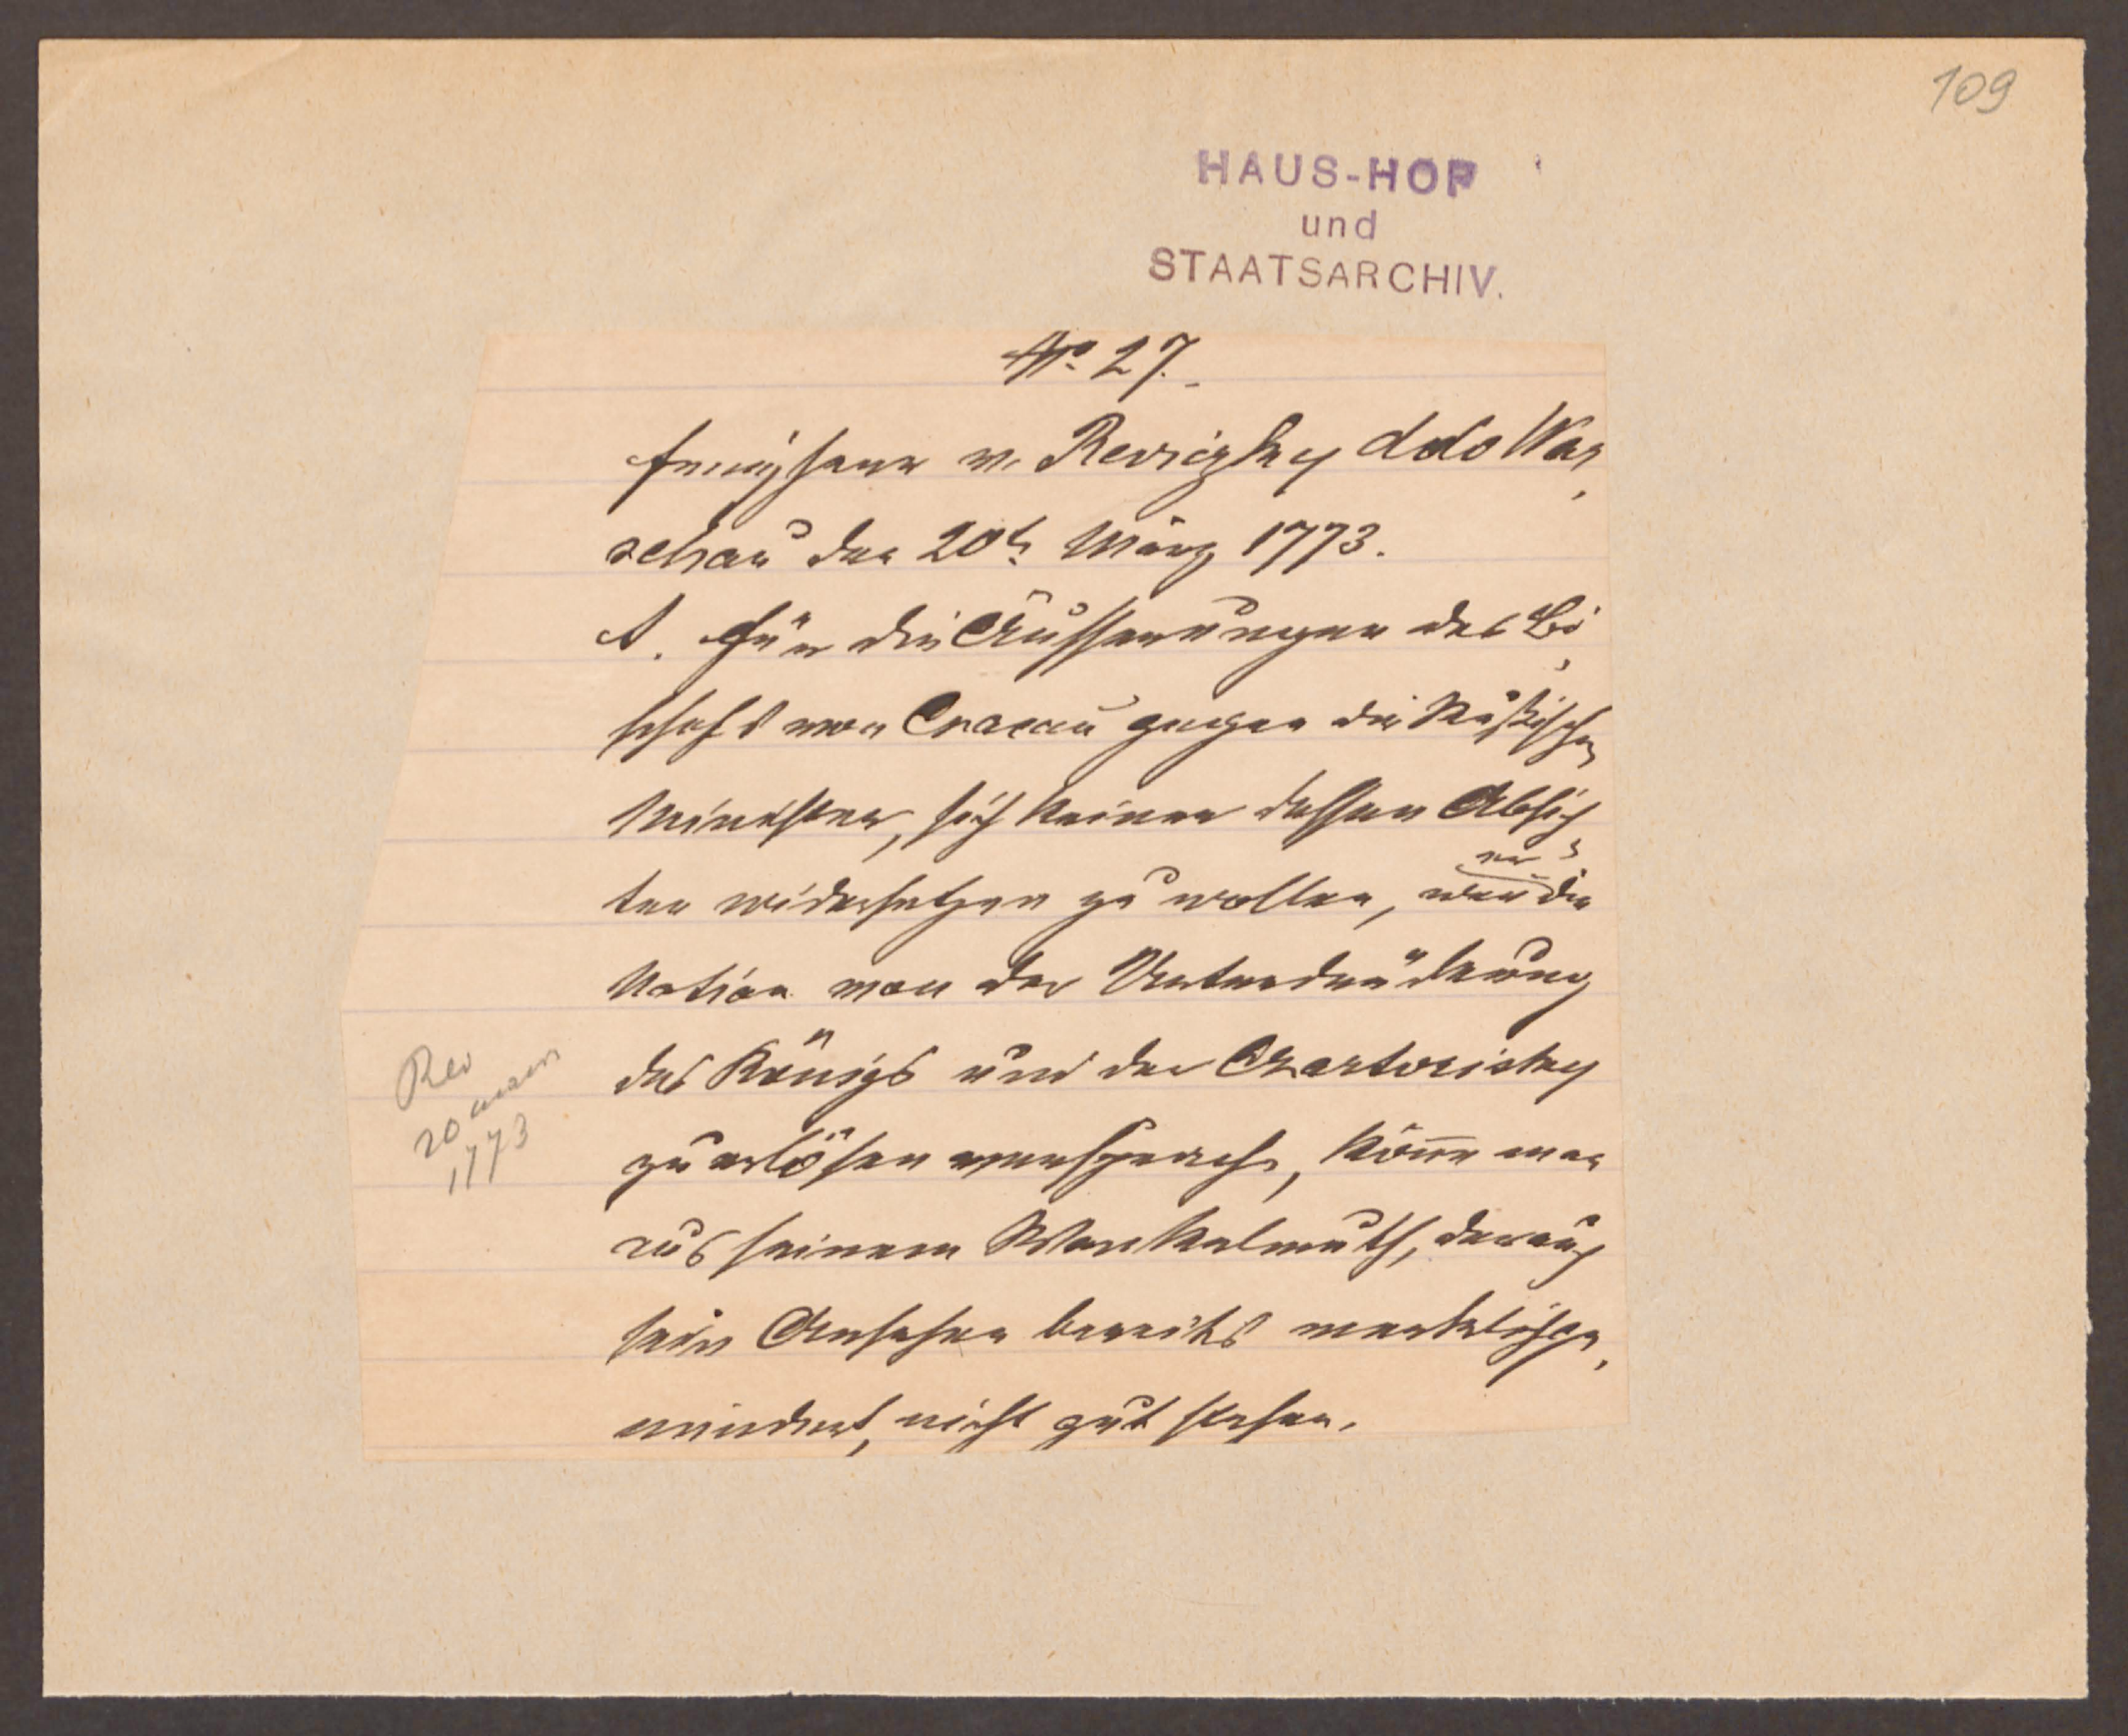 109
HAUS-HOF
und
STAATSARCHIV.
No. 27.
Freyherr v. Reviczky ddo War,
schau den 20t. März 1773.
A. Für die Äusserungen des Bi,
schofs von Cracau gegen die Rußischen
Minister, sich keinen dessen Absich
ten widersetzen zu wollen, wen er die
Nation von der Unterdrückung
des Königs und der Czartorisky
zu erlösen verspreche, könne man
aus seinem Wankelmuth, durch
sein Ansehen bereits merklich ge,
mindert, nicht gut stehen.
Rev
20 mars
1773